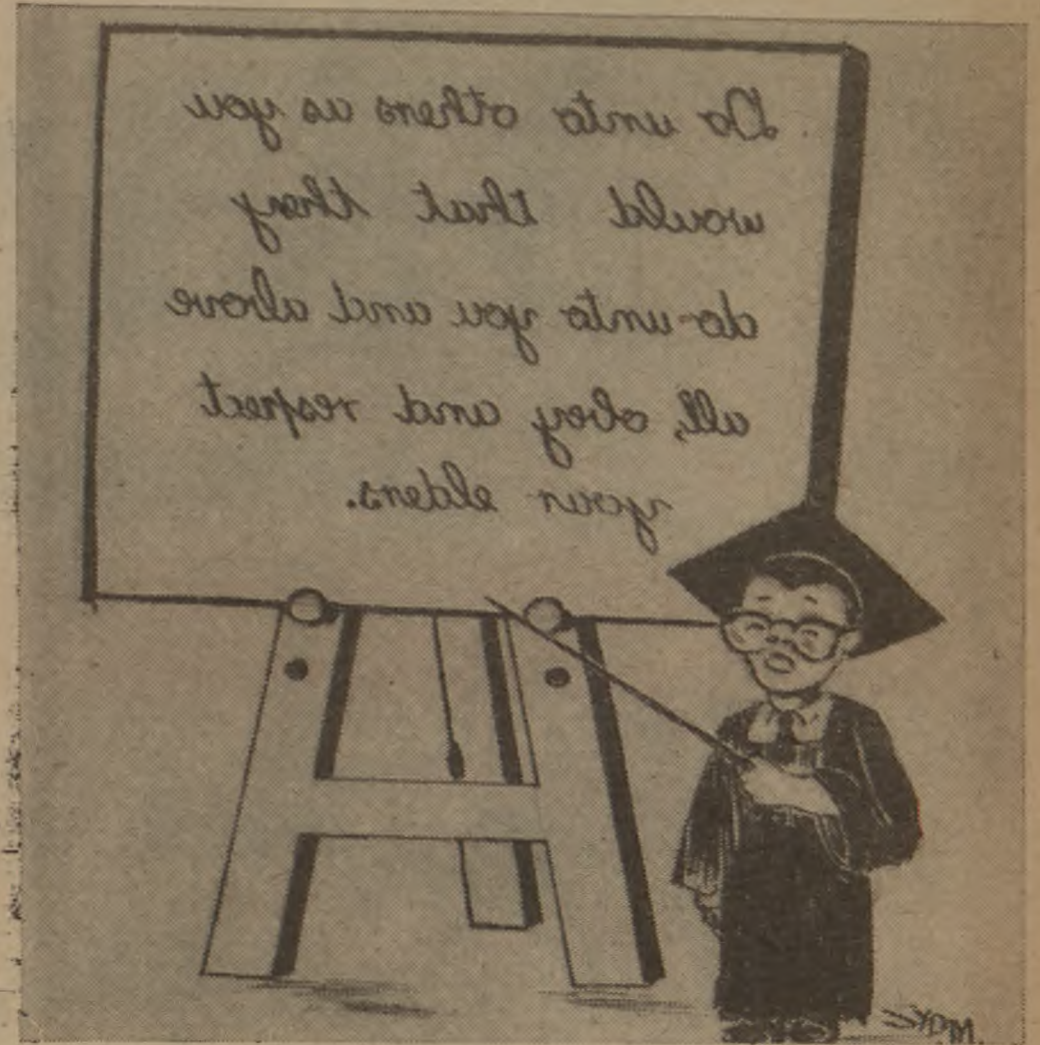 Do unto others as you
would that they
do unto you and above
all, obey and respect
your elders.